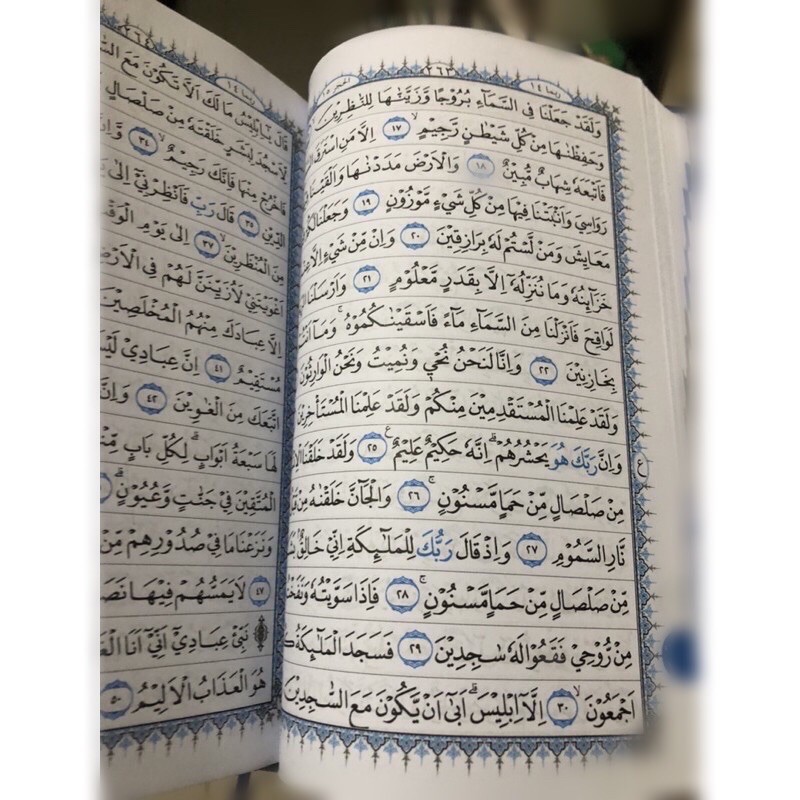 ٢٦٣
ربما ١٤
وَلَقَدْ جَعَلْنَا فِى السَّمَآءِ بُرُوْجًا وَّزَيَّنّٰهَا لِلنّٰظِرِيْنَ
وَحَفِظْنٰهَا مِنْ كُلِّ شَيْطٰنٍ رَّجِيْمٍ ۙ ١٧ اِلَّا مَنِ اسْتَرَقَ
فَاَتْبَعَهٗ شِهَابٌ مُّبِيْنٌ ١٨ وَالْاَرْضَ مَدَدْنٰهَا وَاَلْقَيْنَا
رَوَاسِيَ وَاَنْبَتْنَا فِيْهَا مِنْ كُلِّ شَيْءٍ مَّوْزُوْنٍ ١٩ وَجَعَلْنَا لَكُمْ
مَعَايِشَ وَمَنْ لَّسْتُمْ لَهٗ بِرَازِقِيْنَ ٢٠ وَاِنْ مِّنْ شَيْءٍ اِلَّا
خَزَآئِنُهٗ وَمَا نُنَزِّلُهٗٓ اِلَّا بِقَدَرٍ مَّعْلُوْمٍ ٢١ وَاَرْسَلْنَا
لَوَاقِحَ فَاَنْزَلْنَا مِنَ السَّمَآءِ مَآءً فَاَسْقَيْنٰكُمُوْهُ ۚ وَمَآ اَنْتُمْ
بِخَازِنِيْنَ ٢٢ وَاِنَّا لَنَحْنُ نُحْيٖ وَنُمِيْتُ وَنَحْنُ الْوَارِثُوْنَ
وَلَقَدْ عَلِمْنَا الْمُسْتَقْدِمِيْنَ مِنْكُمْ وَلَقَدْ عَلِمْنَا الْمُسْتَأْخِرِيْنَ
وَاِنَّ رَبَّكَ هُوَ يَحْشُرُهُمْ ۗ اِنَّهٗ حَكِيْمٌ عَلِيْمٌ ࣖ ٢٥ وَلَقَدْ خَلَقْنَا
مِنْ صَلْصَالٍ مِّنْ حَمَاٍ مَّسْنُوْنٍ ۚ ٢٦ وَالْجَآنَّ خَلَقْنٰهُ مِنْ
نَّارِ السَّمُوْمِ ٢٧ وَاِذْ قَالَ رَبُّكَ لِلْمَلٰٓئِكَةِ اِنِّيْ خَالِقٌ
مِّنْ صَلْصَالٍ مِّنْ حَمَاٍ مَّسْنُوْنٍ ۚ ٢٨ فَاِذَا سَوَّيْتُهٗ وَنَفَخْتُ
مِنْ رُّوْحِيْ فَقَعُوْا لَهٗ سٰجِدِيْنَ ٢٩ فَسَجَدَ الْمَلٰٓئِكَةُ
اَجْمَعُوْنَ ۙ ٣٠ اِلَّآ اِبْلِيْسَ ۗ اَبٰىٓ اَنْ يَّكُوْنَ مَعَ السّٰجِدِيْنَ
ع
٢٦٤
ربما ١٤
قَالَ يٰٓاِبْلِيْسُ مَا لَكَ اَلَّا تَكُوْنَ مَعَ
لِاَسْجُدَ لِبَشَرٍ خَلَقْتَهٗ مِنْ صَلْصَالٍ
فَاخْرُجْ مِنْهَا فَاِنَّكَ رَجِيْمٌ ۙ ٣٤ وَاِنَّ
الدِّيْنِ ٣٥ قَالَ رَبِّ فَاَنْظِرْنِيْٓ اِلٰى
مِنَ الْمُنْظَرِيْنَ ۙ ٣٧ اِلٰى يَوْمِ الْوَقْتِ
اَغْوَيْتَنِيْ لَاُزَيِّنَنَّ لَهُمْ فِى الْاَرْضِ
اِلَّا عِبَادَكَ مِنْهُمُ الْمُخْلَصِيْنَ
مُسْتَقِيْمٌ ٤١ اِنَّ عِبَادِيْ لَيْسَ
اتَّبَعَكَ مِنَ الْغٰوِيْنَ ٤٢ وَاِنَّ
لَهَا سَبْعَةُ اَبْوَابٍ ۗ لِكُلِّ بَابٍ
الْمُتَّقِيْنَ فِيْ جَنّٰتٍ وَّعُيُوْنٍ ۗ
وَنَزَعْنَا مَا فِيْ صُدُوْرِهِمْ مِّنْ
٤٧ لَا يَمَسُّهُمْ فِيْهَا نَصَبٌ
۞ نَبِّئْ عِبَادِيْٓ اَنِّيْٓ اَنَا
هُوَ الْعَذَابُ الْاَلِيْمُ ٥٠